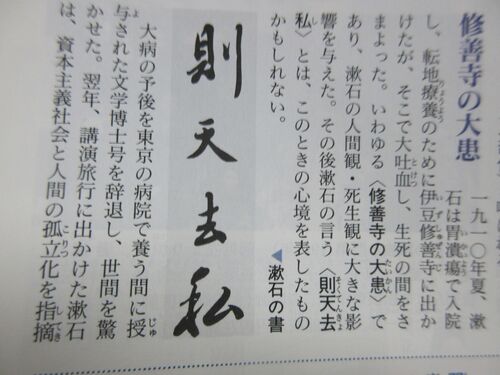 修善寺の大患
一九一〇年夏、漱
石は胃潰瘍で入院
し、転地療養のために伊豆修善寺に出か
けたが、そこで大吐血し、生死の間をさ
まよった。いわゆる〈修善寺の大患〉で
あり、漱石の人間観・死生観に大きな影
響を与えた。その後漱石の言う〈則天去
私〉とは、このときの心境を表したもの
かもしれない。
◀漱石の書
則天去私
大病の予後を東京の病院で養う間に授
与された文学博士号を辞退し、世間を驚
かせた。翌年、講演旅行に出かけた漱石
は、資本主義社会と人間の孤立化を指摘